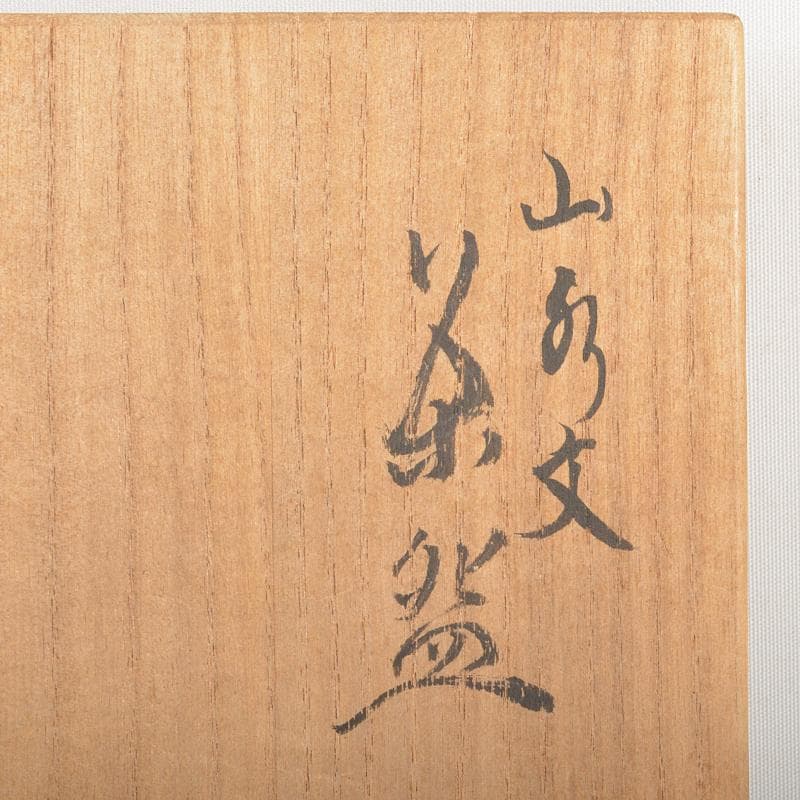 山水文
菓盌